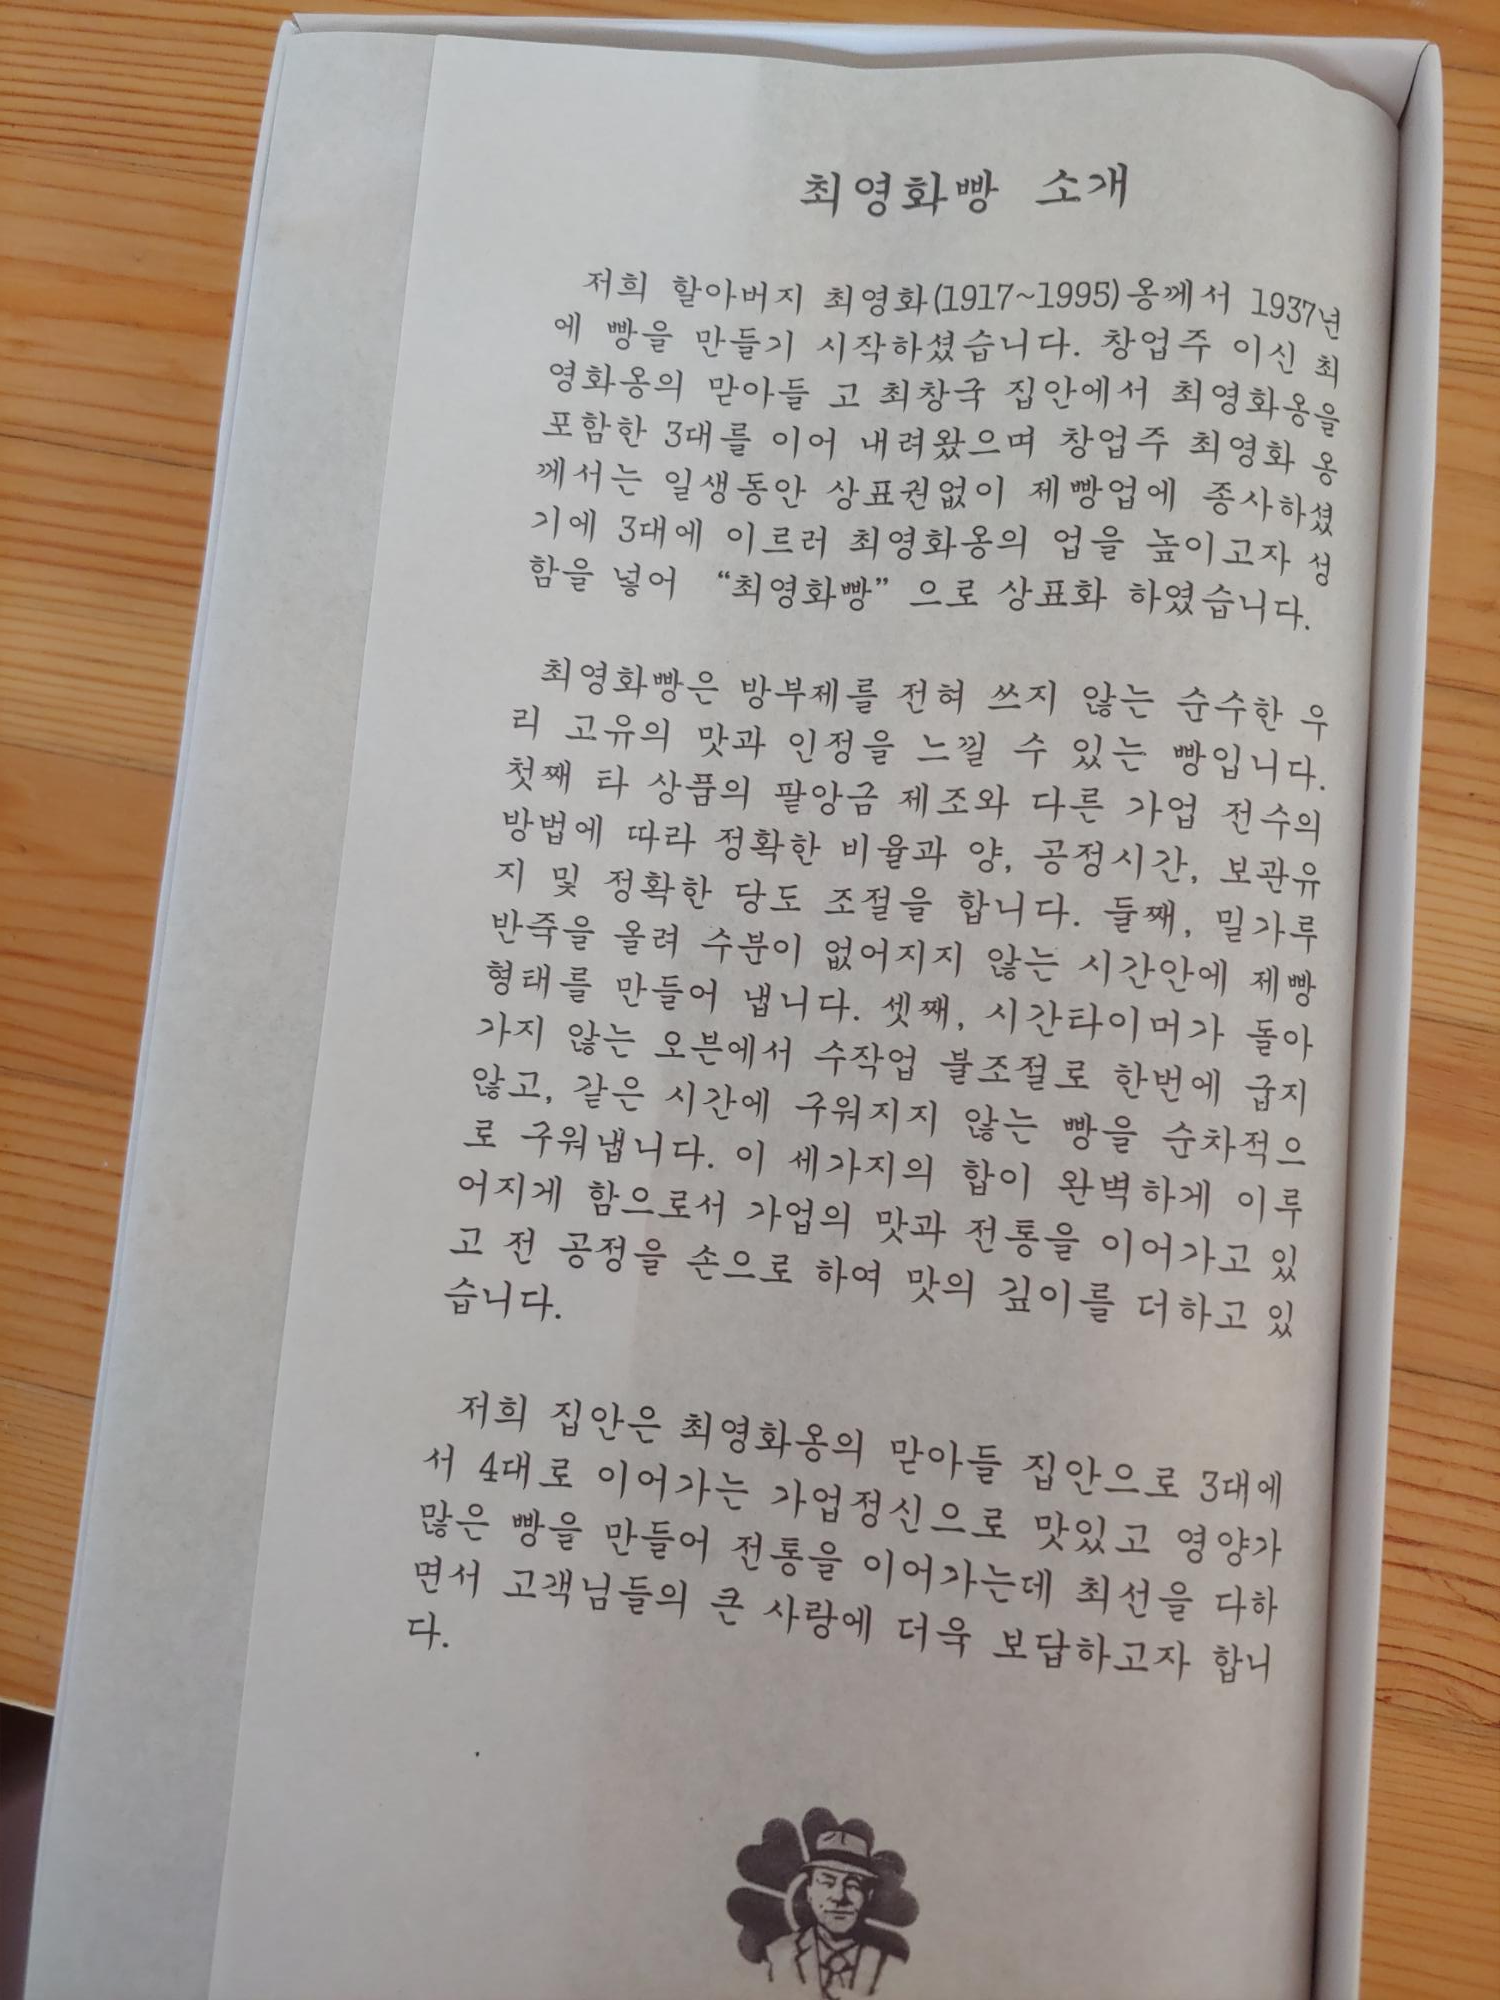 최영화빵 소개
저희 할아버지 최영화(1917~1995)옹께서 1937년
에 빵을 만들기 시작하셨습니다. 창업주 이신 최
영화옹의 맏아들 고 최창국 집안에서 최영화옹을
포함한 3대를 이어 내려왔으며 창업주 최영화 옹
께서는 일생동안 상표권없이 제빵업에 종사하셨
기에 3대에 이르러 최영화옹의 업을 높이고자 성
함을 넣어 “최영화빵” 으로 상표화 하였습니다.
최영화빵은 방부제를 전혀 쓰지 않는 순수한 우
리 고유의 맛과 인정을 느낄 수 있는 빵입니다.
첫째 타 상품의 팥앙금 제조와 다른 가업 전수의
방법에 따라 정확한 비율과 양, 공정시간, 보관유
지 및 정확한 당도 조절을 합니다. 둘째, 밀가루
반죽을 올려 수분이 없어지지 않는 시간안에 제빵
형태를 만들어 냅니다. 셋째, 시간타이머가 돌아
가지 않는 오븐에서 수작업 불조절로 한번에 굽지
않고, 같은 시간에 구워지지 않는 빵을 순차적으
로 구워냅니다. 이 세가지의 합이 완벽하게 이루
어지게 함으로서 가업의 맛과 전통을 이어가고 있
고 전 공정을 손으로 하여 맛의 깊이를 더하고 있
습니다.
저희 집안은 최영화옹의 맏아들 집안으로 3대에
서 4대로 이어가는 가업정신으로 맛있고 영양가
많은 빵을 만들어 전통을 이어가는데 최선을 다하
면서 고객님들의 큰 사랑에 더욱 보답하고자 합니
다.